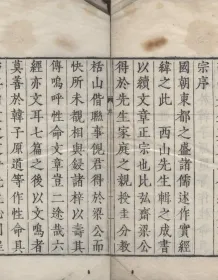 宗序
國朝東都之盛諸儒述作實經
緯之此 西山先生輯之成書
以續文章正宗也比弘齋梁公
得於先生家庭之親授圭分教
括山偕聮事倪君得於梁公而
快所未觀相與鋟諸梓以壽其
傳嗚呼性命文章豈二途哉六
經亦文耳七篇之後以文鳴者
莫善於韓子原道等作性命具